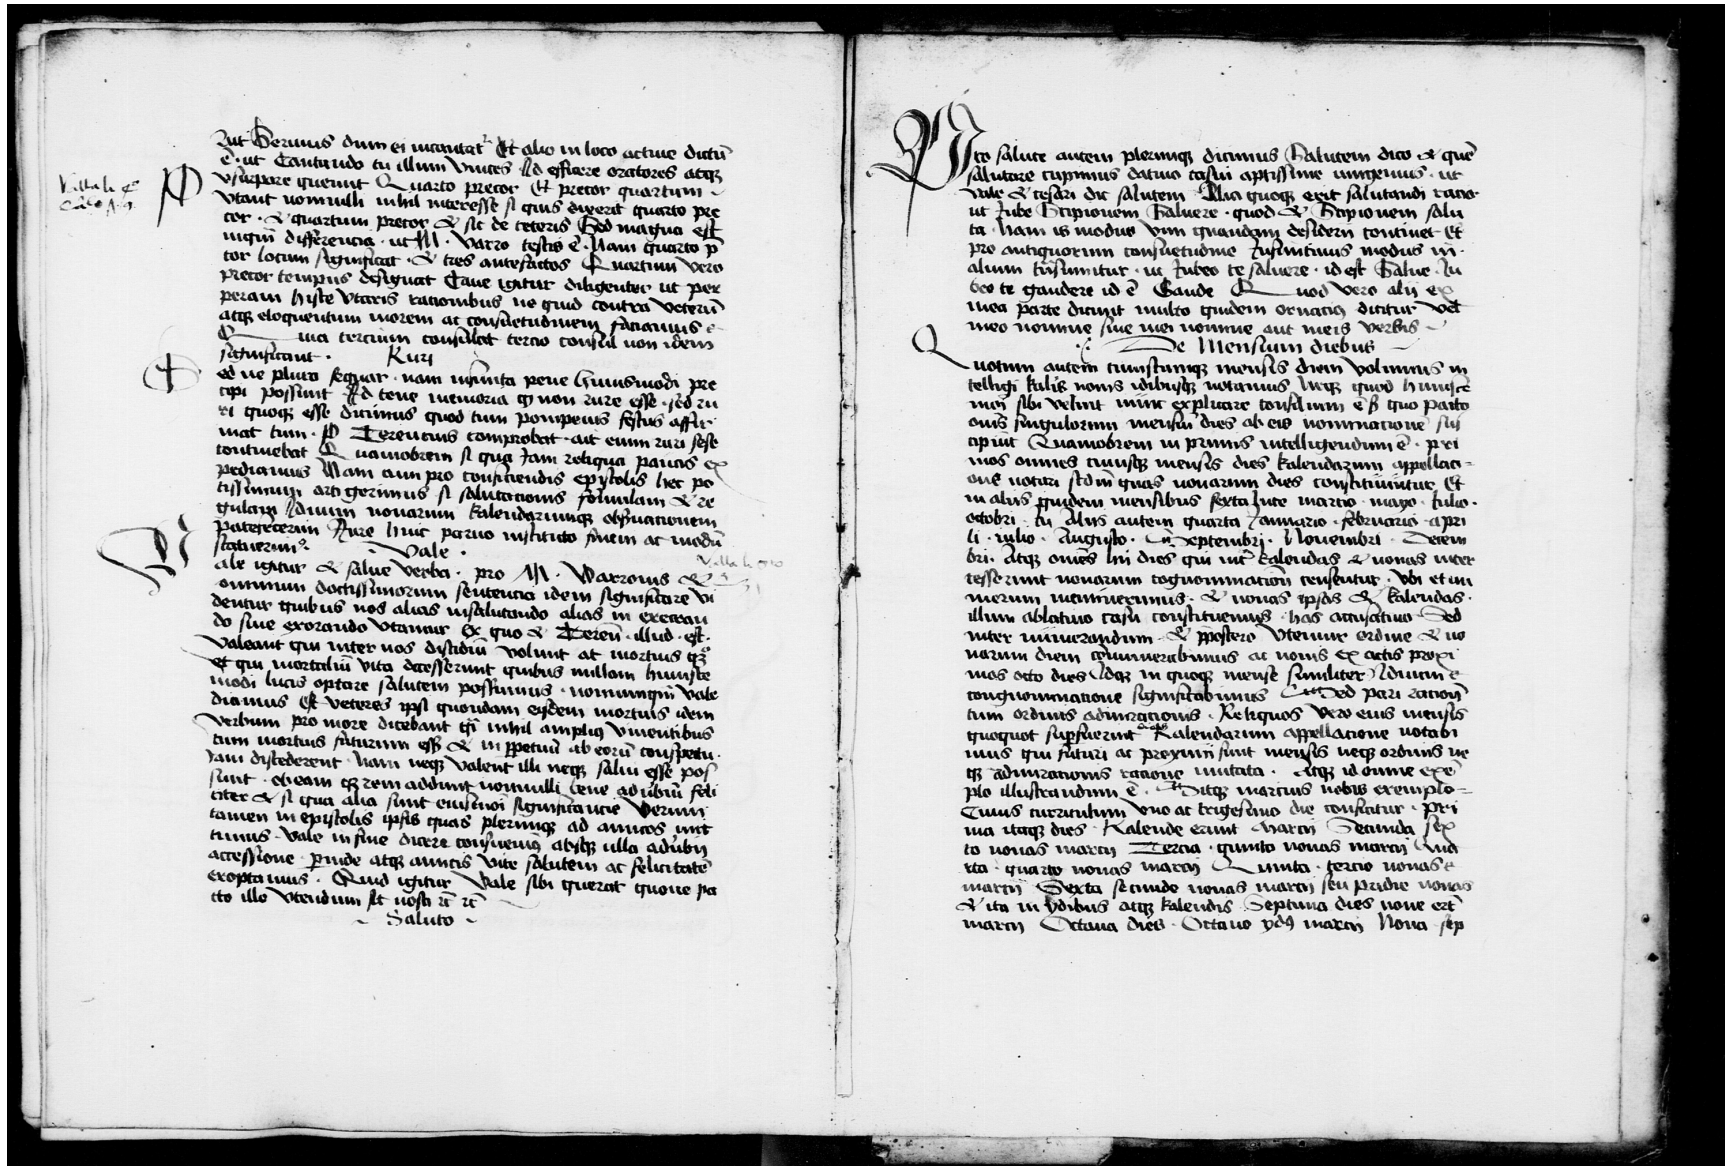 aut Servius dum ei incantat Et alio in loco active dictū
ē ut Cantando tu illum vinces Id efficere oratores atqȝ
usurpare querunt Quarto pretor Et pretor quartum
Putant nonnulli nihil interesse si quis dixerit quarto pre
tor & quartum pretor & sic de ceteris Sed magna est
differencia ut M Varro testis ē Nam quarto p̄
tor locum significat & tres antefactos Quartum vero
pretor tempus designat Cave igitur diligenter ut per
peram hisce utaris racionibus ne quid contra veterū
atqȝ eloquentum morem ac consuetudinem faciamus
Quia tercium consul et tercio consul non idem
significant
Ruri
Sed ne pluro sequar nam infinita pene huiusmodi pre
cipi possunt Id tene memoria non rure esse sed ru
ri quoqȝ esse dicimus quod tum pompeius festus affir
mat tum P Terencius comprobat ait enim ruri sese
continebat Quamobrem si qua iam reliqua paucis ex
pediamus Nam cum pro conficiendis epistolis hec po
tissimum si salutacionis & re
gulam nonarum kalendarumqȝ observationem
patefecerim Iure huic parvo instituto finem ac modū
statuerim
Vale
Vale igitur & salve verba pro M Varronis &
omnium doctissimorum sentencia idem significare vi
dentur quibus nos alias in salutando alias in execran
do sive exorando utamur Ex quo & Teren illud est
Valeant qui inter nos discidiū volunt at mortuis
et qui mortaliū vita decesserunt quibus nullam huiusce
modi lucis optare salutem possumus nonnunqȝ vale
dicimus Et veteres ipsi quondam eisdem mortuis idem
verbum pro more dicebant nihil amplius viventibus
cum mortuis futurum esse & in perpetuū ab eorū conspectu
iam discederent Nam neqȝ valent illi neqȝ salvi esse pos
sunt rem addunt nonnulli bene adverbiū feli
citer & si qua alia sunt eiusmoi significancie Verum
tamen in epistolis ipsis quas plerumqȝ ad amicos mit
timus vale in fine dicere consuevimus absqȝ ulla adverbij
accessione Perinde atqȝ amicis vite salutem ac felicitatē
exoptamus Quid igitur Vale sibi querat quove pa
cto illo utendum sit nosti
Saluto
Dico salute autem plerumqȝ dicimus Salutem dico & quē
salutare cupimus dativo casui aptissime iungemus ut
vale & cesari dic salutem Alia quoqȝ erit salutandi racio
ut Iube Scipionem Salvere quod & Scipionem salu
ta Nam is modus vim quandam desiderii continet Et
pro antiquorum consuetudine Infinitivus modus in
alium transumitur ut Iubeo te salvere id est Salve Iu
beo te gaudere id ē Gaude Quod vero alij ex
mea parte dicunt multo quidem ornacius dicitur vel
meo nomine sive mei nomine aut meis verbis
De Mensium diebus
Quotum autem cuiuscumqȝ mensis diem volumus in
telligi kalēs nonis idibusqȝ notamus Neqȝ quid huiusce
moi sibi velint nunc explicare consilium ē sȝ quo pacto
omīs singulorum mensiū dies ab eis nominacione sus
cipiunt Quamobrem in primis intelligendum ē pri
mos omnes cuiusqȝ mensis dies kalendarum appellaci=
one notari scdm quas nonarum dies constituuntur Et
in aliis quidem mensibus sexta luce marcio mayo iulio
octobri in Aliis autem quarta Ianuario februario apri
li iulio Augusto Septembri Novembri Decem
bri Atqȝ omēs hii dies qui intr kalendas & nonas inter
cesserunt nonarum cognominacioni censentur Ubi et nu
merum meminerimus & nonas ipsas & kalendas
illum ablativo casu constituemus has accusativo Sed
inter numerandum & prepostero utemur ordine & no
narum diem connumerabimus ac nonis exactis proxi
mos octo dies Idqȝ in quoqȝ mense similiter Iduum
congnominacione significabimus Sed pari racioni
tum ordinis admiracionis Reliquos vero eius mensis
quotquot superfuerint Kalendarum appellacione notabi
mus qui futuri ac proximi sunt mensis neqȝ ordinis ne
qȝ admiracionis racione mutata Atqȝ id omne exē
plo illustrandum ē Sitqȝ marcius nobis exemplo=
Cuius curriculum uno ac trigesimo die conficitur Pri
ma itaqȝ dies Kalende erunt marcij Secunda sex
to nonas marcij Tercia quinto nonas marcij Qua
rta quarto nonas marcij Quinta tercio nonas
marcij Sexta secundo nonas marcij seu pridie nonas
& ita in ydibus atqȝ kalendis Septima dies none ert
marcij Octava dies Octavo ydꝰ marcij Nona sep